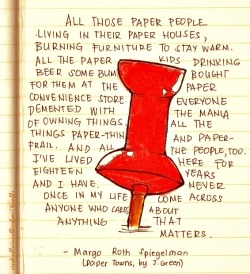 ALL THOSE PAPER PEOPLE
LIVING IN THEIR PAPER HOUSES,
BURNING FURNITURE TO STAY WARM.
ALL THE PAPER KIDS DRINKING
BEER SOME BUM BOUGHT
FOR THEM AT THE PAPER
CONVENIENCE STORE. EVERYONE
DEMENTED WITH THE MANIA
OF OWNING THINGS. ALL THE
THINGS PAPER-THIN AND PAPER-
FRAIL. AND ALL THE PEOPLE, TOO.
I'VE LIVED HERE FOR
EIGHTEEN YEARS
AND I HAVE NEVER
ONCE IN MY LIFE COME ACROSS
ANYONE WHO CARES ABOUT
ANYTHING THAT
MATTERS.
- Margo Roth Spiegelman
(Paper Towns, by J. Green)